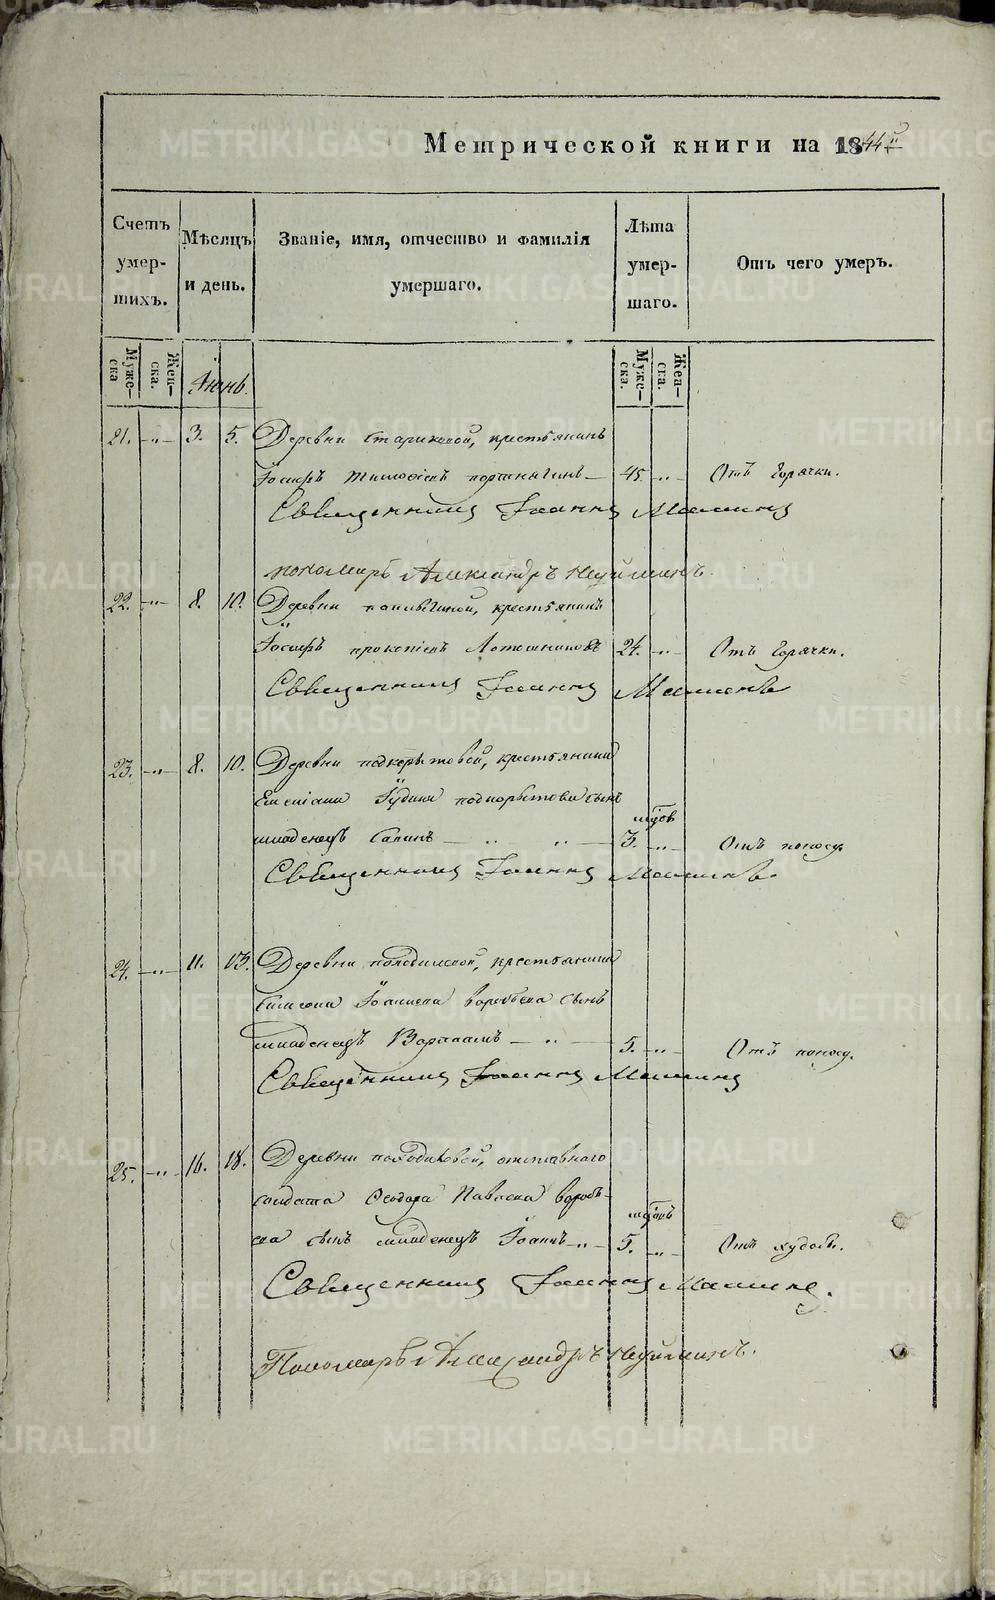 Метрической книги на 1844й
Счетъ умершихъ.
Мѣсяцъ и день.
Званіе, имя, отчество и фамилія умершаго.
Лѣта умершаго.
Отъ чего умеръ.
Мужеска
Женска.
Іюнь.
Мужеска.
Женска.
21. „ 3. 5. Деревни Стариковой, крестьянинъ
Іосифъ Тимофіевъ 45. „ Отъ горячки.
Священникъ Іоаннъ Мамин
пономарь Александръ Неуйминъ.
22. „ 8. 10. Деревни крестьянинъ
Іосифъ Прокопіевъ Лотошниковъ 24. „ Отъ горячки.
Священникъ Іоаннъ Маминъ
23. „ 8. 10. Деревни подкорытовой, крестьянина
Іудина подкорытова сынъ
младенецъ 3. „ Отъ поносу.
Священникъ Іоаннъ Маминъ
24. „ 11. 13. Деревни крестьянина
Симеона Іоаннова воробьева сынъ
младенецъ Варлаамъ 5. „ Отъ поносу.
Священникъ Іоаннъ Маминъ
25. „ 16. 18. Деревни отставнаго
солдата Феодора Павлова воробь-
ева сынъ младенецъ Іоаннъ 5. „ Отъ худобы.
Священникъ Іоаннъ Маминъ.
Пономарь Александръ Неуйминъ.
METRIKI.GASO-URAL.RU